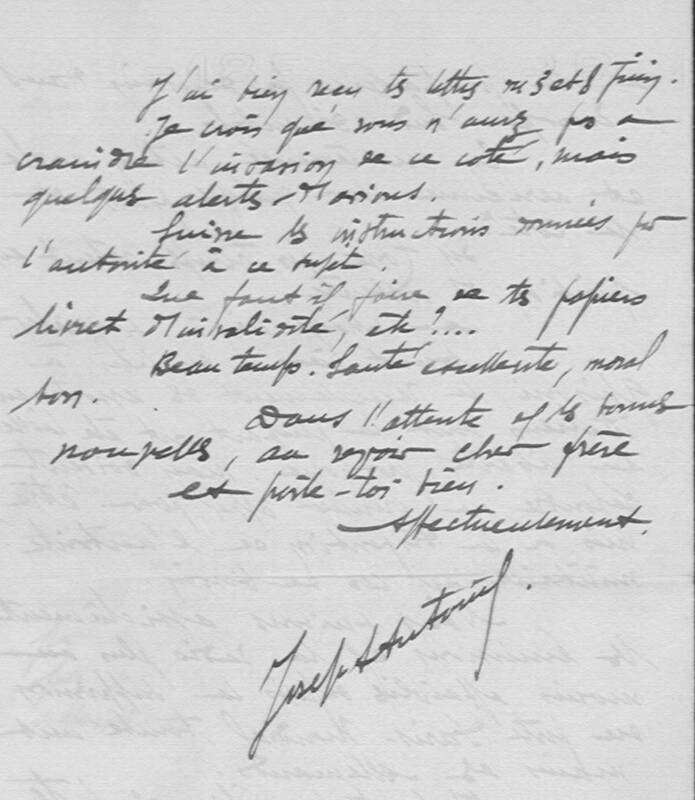 J'ai bien reçu tes lettres du 3 et 8 Juin.
Je crois que vous n'aurez pas à
craindre l'invasion de ce coté, mais
quelques alertes d'avions.
Suivre les instructions données par
l'autorité à ce sujet.
Que faut il faire de tes papiers
livret d'invalidité, etc?...
Beau temps. Santé excellente, moral
bon.
Dans l'attente de tes bonnes
nouvelles, au revoir cher frère
et porte-toi bien.
Affectueusement.
Joseph